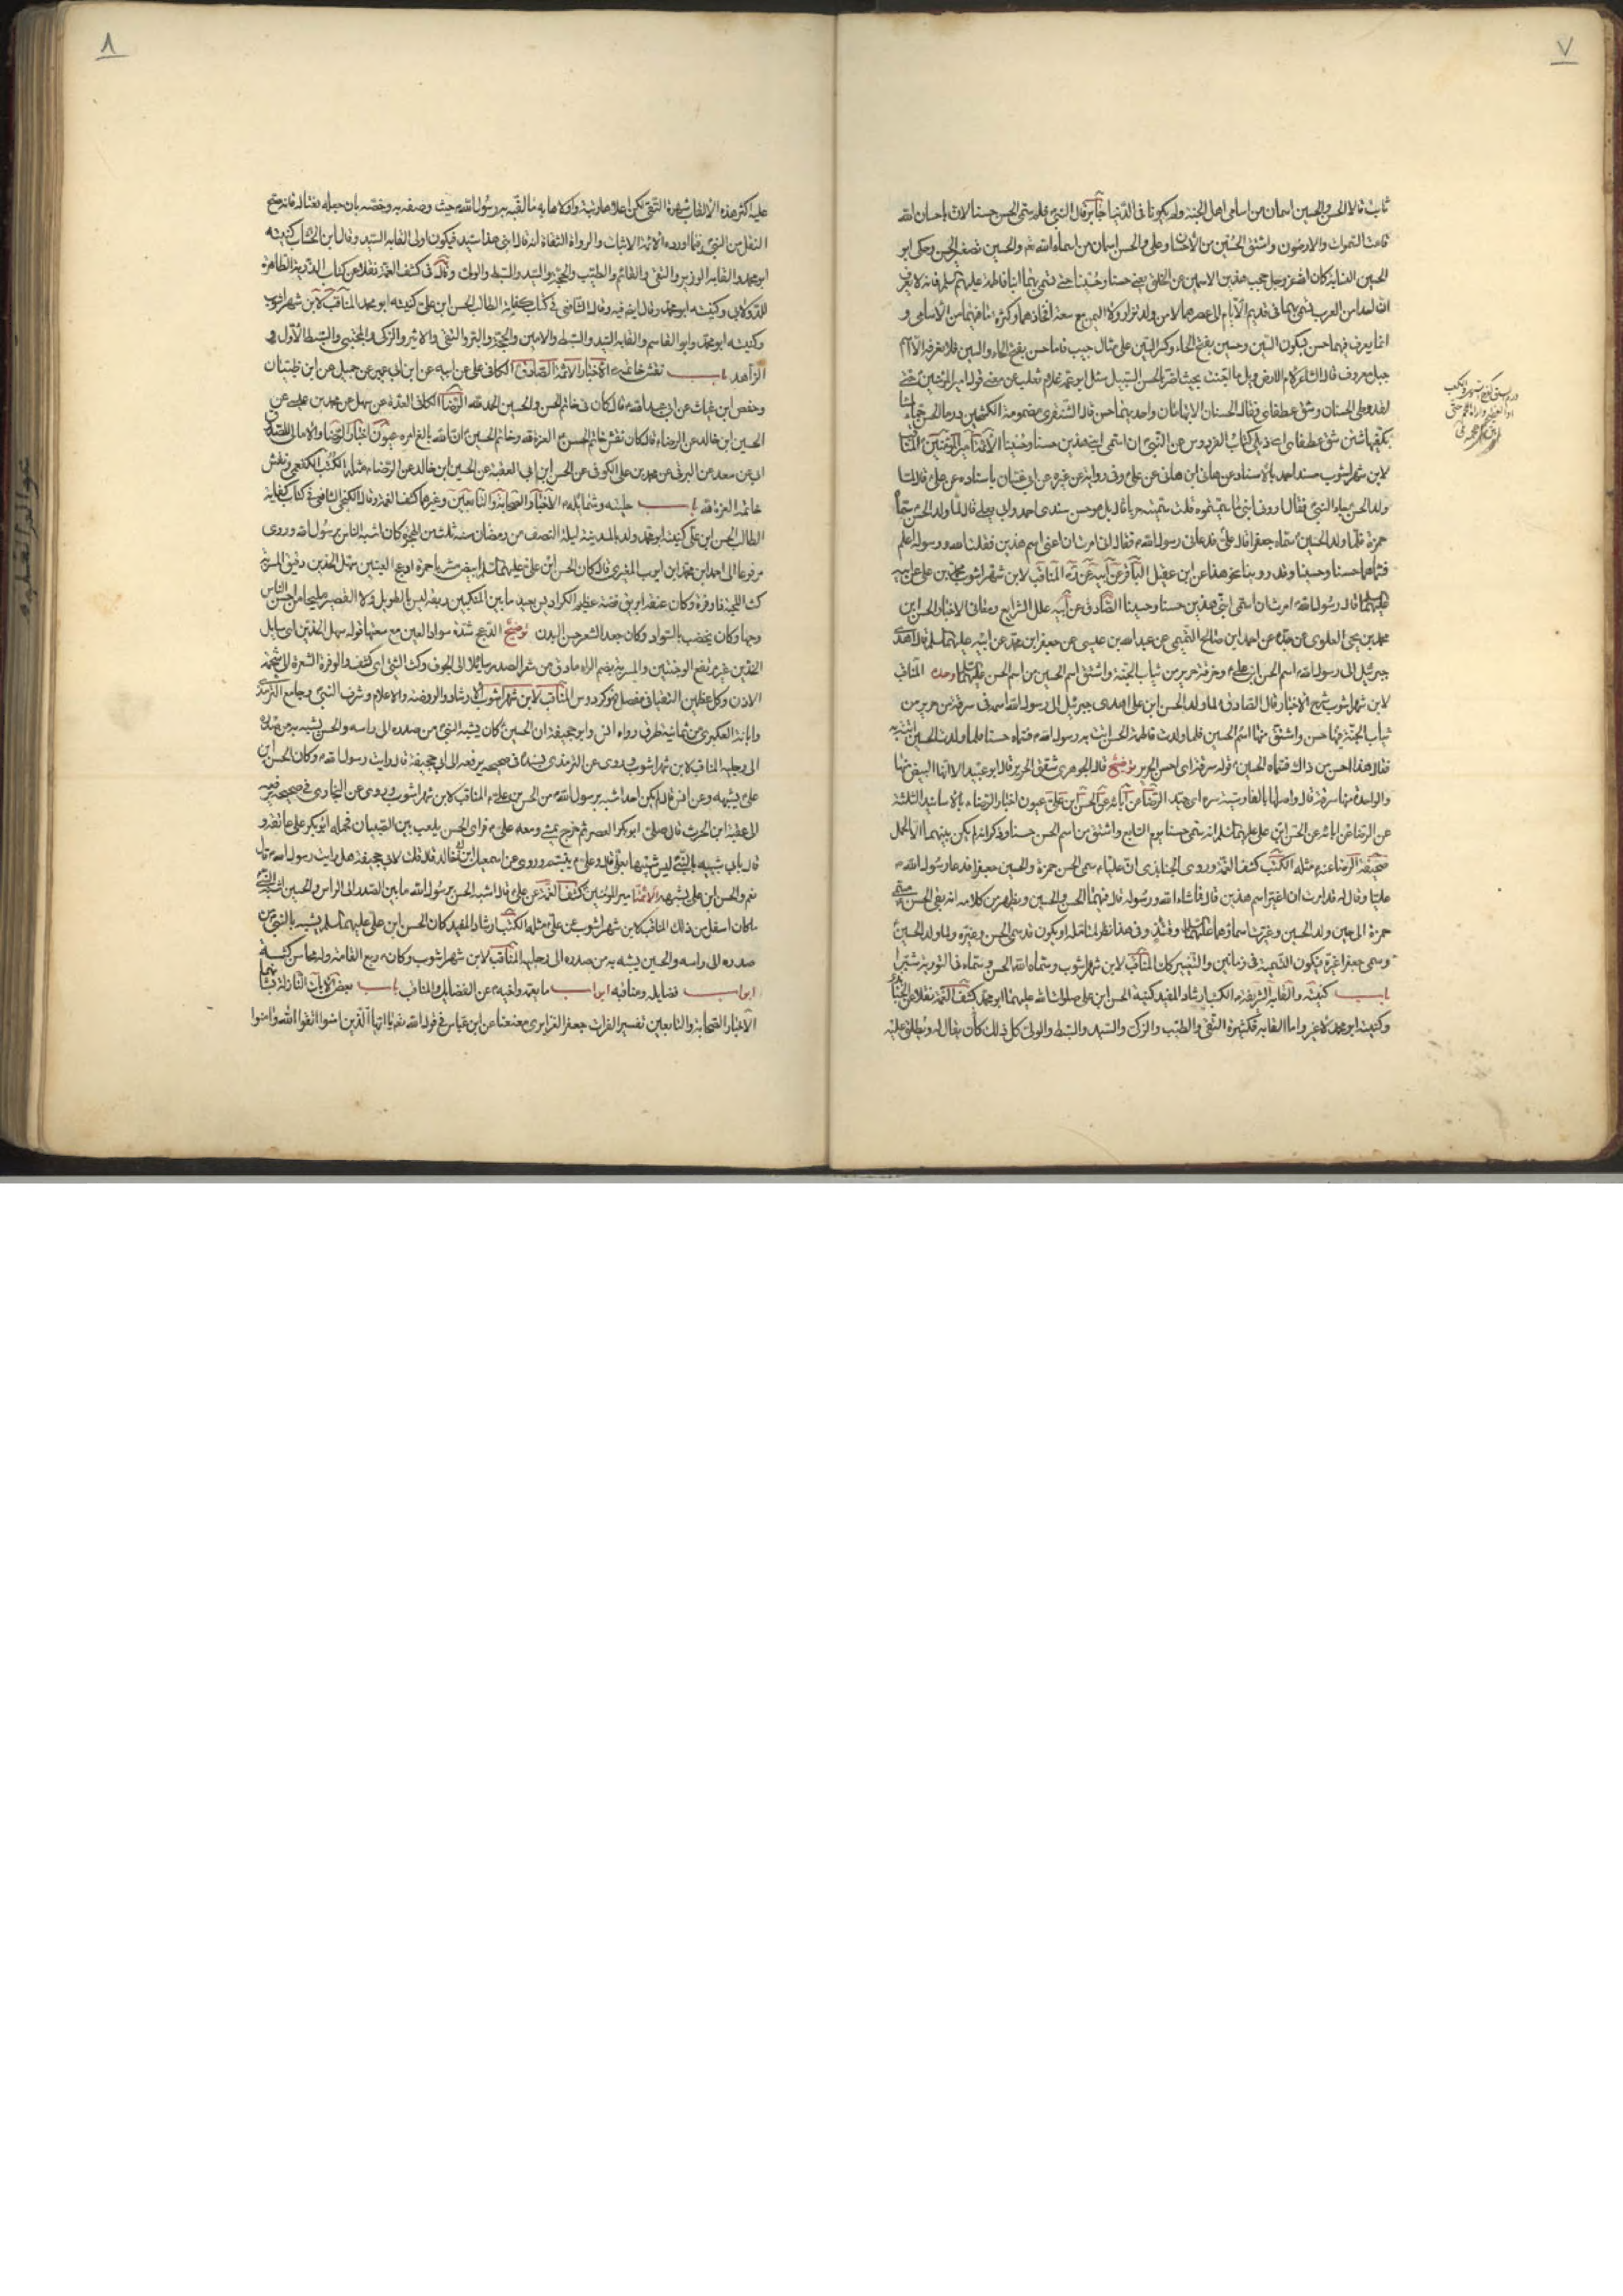 ٧
ثابت قالا الحسن والحسين اسمان من اسامي اهل الجنة ولم يكونا في الدنيا جابر قال النبي سمي الحسن حسنا لان باحسان الله
قامت السموات والارضون واشتق الحسين من الاحسان وعلي والحسن اسمان من اسماء الله تعالى والحسين تصغير الحسن وحكى ابو
الحسين النسابة كان الله عز وجل حجب هذين الاسمين عن الخلق يعني حسنا وحسينا حتى يسمي بهما ابنا فاطمة عليهم السلم فانه لا يعرف
ان احدا من العرب تسمى بهما في قديم الايام الى عصرهما لا من ولد نزار ولا اليمن مع سعة افخاذهما وكثرة ما فيهما من الاسامي و
انما يعرف فيهما حسن بسكون السين وحسين بفتح الحاء وكسر السين على مثال حبيب فاما حسن بفتح الحاء والسين فلا نعرفه الا اسم
جبل معروف قال الشاعر لام الارض ويل ما اجنت بحيث اضر بالحسن السبيل سئل ابو عمر غلام ثعلب عن معنى قول امير المؤمنين حتى
لقد وطئ الحسنان وشق عطفاي فقال الحسنان الابهامان واحدهما حسن قال الشنفرى مهضومة الكشحين درماء الحسن
شق عطفاي اي ذيلي كتاب الفردوس عن النبي ان اسمي ابني هذين حسنا وحسينا الائمة امير المؤمنين المناقب
لابن شهراشوب مسند احمد بالاسناد عن هاني ابن هاني عن علي وفي رواية عن غيره عن ابي غسان باسناده عن علي قال لما
ولد الحسن جاء النبي فقال اروني ابني ما سميتموه قلت سميته حربا قال بل هو حسن مسندي احمد وابي يعلى قال لما ولد الحسن سماه
حمزة فلما ولد الحسين سماه جعفرا قال علي فدعاني رسول الله فقال اني امرت ان اغير اسم هذين فقلت الله ورسوله اعلم
فسماهما حسنا وحسينا وقد روينا نحو هذا عن ابن عقيل الباقر عن ابيه عن جده المناقب لابن شهراشوب محمد بن علي عن ابيه
عليهما قال رسول الله امرت ان اسمي ابني هذين حسنا وحسينا الصادق عن ابيه علل الشرايع ومعاني الاخبار الحسن ابن
محمد بن يحيى العلوي عن جده عن احمد ابن صالح التميمي عن عبد الله بن عيسى عن جعفر ابن محمد عن ابيه عليهما السلم قال اهدى
جبرئيل الى رسول الله اسم الحسن ابن علي وخرقة حرير من ثياب الجنة واشتق اسم الحسين من اسم الحسن عليهما وحده المناقب
لابن شهراشوب شرح الاخبار قال الصادق لما ولد الحسن ابن علي اهدى جبرئيل الى رسول الله اسمه في سرقة من حرير من
ثياب الجنة فيها حسن واشتق منها اسم الحسين فلما ولدت فاطمة الحسن اتت به رسول الله فسماه حسنا فلما ولدت الحسين اتته به
فقال هذا احسن من ذاك فسماه الحسين قوله سرقة اي احسن الحرير توضيح قال الجوهري شقق الحرير قال ابو عبيد الا انها البيض منها
والواحدة منها سرقة قال واصلها بالفارسية سره اي جيد الرضا عن آبائه عن الحسن ابن علي عيون اخبار الرضا بالاسانيد الثلثة
عن الرضا عن ابائه عن الحسن ابن علي عليهما السلم انه سمى حسنا يوم السابع واشتق من اسم الحسن حسينا وذكر انه لم يكن بينهما الا الحمل
صحيفة الرضا عنه مثله الكتب كشف الغمة وروى الجنابذي ان عليا سمى الحسن حمزة والحسين جعفرا فدعا رسول الله
عليا وقال له قد امرت ان اغير اسم هذين قال فما شاء الله ورسوله قال فهما الحسن والحسين ويظهر من كلامه انه بقي الحسن مسمى
حمزة الى حين ولد الحسين وغيرت اسماؤهما عليهما السلام وقتئذ وفي هذا نظر لمتامله او يكون قد سمى الحسن وغيره ولما ولد الحسين
وسمى جعفرا غيره فيكون التسمية في زمانين والتغيير كان المناقب لابن شهراشوب وسماه الله الحسن وسماه في التورية شبرا
باب كنيته والقابه الشريفة الكتب ارشاد المفيد كنية الحسن ابن علي صلوات الله عليهما ابو محمد كشف الغمة نقلا عن
وكنيته ابو محمد لا غير واما القابه فكثيرة التقي والطيب والزكي والسيد والسبط والولي كل ذلك كان يقال له ويطلق عليه
٨
عليه اكثر هذه الالقاب شهرة التقي لكن اعلاها رتبة واولاها به ما لقبه به رسول الله حيث وصفه به وخصه بان جعله نعتا له فانه صح
النقل عن النبي فيما اورده الائمة الاثبات والرواة الثقاة انه قال ابني هذا سيد فيكون اولى القابه السيد وقال ابن الخشاب كنيته
ابو محمد والقابه الوزير والتقي والقائم والطيب والحجة والسيد والسبط والولي وقال في كشف الغمة نقلا من كتاب الذرية الطاهرة
للدولابي وكنيته ابو محمد وقال ايضا فيه وقال الشافعي في كتاب كفاية الطالب الحسن ابن علي كنيته ابو محمد المناقب لابن شهراشوب
وكنيته ابو محمد وابو القاسم والقابه السيد والسبط والامين والحجة والبر والتقي والاثير والزكي والمجتبى والسبط الاول و
الزاهد باب نقش خاتمه الاخبار الائمة الصادق الكافي علي عن ابيه عن ابن ابي عمير عن جميل عن ابن ظبيان
وحفص ابن غياث عن ابي عبد الله قال كان في خاتم الحسن والحسين الحمد لله الرضا الكافي العدة عن سهل عن محمد بن عيسى عن
الحسين ابن خالد عن الرضا قال كان نقش خاتم الحسن العزة لله وخاتم الحسين ان الله بالغ امره عيون اخبار الرضا والامالي للصدوق
ابي عن سعد عن البرقي عن محمد بن علي الكوفي عن الحسن ابن ابي العقبة عن الحسين ابن خالد عن الرضا مثله الكتب الكفعمي ونقش
خاتمه العزة لله باب حليته وشمائله الاخبار الصحابة والتابعين وغيرهما كشف الغمة وقال الكنجي الشافعي في كتاب كفاية
الطالب الحسن ابن علي كنيته ابو محمد ولد بالمدينة ليلة النصف من رمضان سنة ثلث من الهجرة كان اشبه الناس برسول الله وروى
مرفوعا الى احمد ابن محمد ابن ايوب المغيري قال كان الحسن ابن علي عليهما السلم ابيض مشربا حمرة ادعج العينين سهل الخدين دقيق المسربة
كث اللحية ذا وفرة وكان عنقه ابريق فضة عظيم الكراديس بعيد ما بين المنكبين ربعة ليس بالطويل ولا القصير مليحا من احسن الناس
وجها وكان يخضب بالسواد وكان جعد الشعر حسن البدن توضيح الدعج شدة سواد العين مع سعتها قوله سهل الخدين اي سايل
الخدين غير مرتفع الوجنتين والمسربة بضم الراء ما دق من شعر الصدر سايلا الى الجوف وكث الشيء اي كثف والوفرة الشعرة الى شحمة
الاذن وكل عظمين التقيا في مفصل فهو كردوس المناقب لابن شهراشوب الارشاد والروضة والاعلام وشرف النبي وجامع الترمذي
وابانة العكبري من ثمانية طرق رواه انس وابو جحيفة ان الحسين كان يشبه النبي من صدره الى راسه والحسن يشبه به من صدره
الى رجليه المناقب لابن شهراشوب وروى عن الترمذي في صحيحه يرفعه الى ابي جحيفة قال رايت رسول الله وكان الحسن ابن
علي يشبهه وعن انس قال لم يكن احد اشبه برسول الله من الحسن بن علي المناقب لابن شهراشوب وروى عن البخاري في صحيحه يرفعه
الى عقبة ابن الحرث قال صلى ابو بكر العصر ثم خرج يمشي ومعه علي فراى الحسن يلعب بين الصبيان فحمله ابو بكر على عاتقه و
قال بابي شبيه بالنبي ليس شبيها بعلي قال وعلي يتبسم وروى عن اسمعيل ابن ابي خالد قال قلت لابي جحيفة هل رايت رسول الله قال
نعم والحسن ابن علي يشبهه الائمة امير المؤمنين كشف الغمة عن علي قال اشبه الحسن برسول الله ما بين الصدر الى الراس والحسين اشبه النبي
ما كان اسفل من ذلك المناقب لابن شهراشوب عن علي مثله الكتب ارشاد المفيد كان الحسن ابن علي عليهما السلم يشبه بالنبي من
صدره الى راسه والحسين يشبه به من صدره الى رجليه المناقب لابن شهراشوب وكان ربع القامة وله محاسن كثة
ابواب فضايله ومناقبه ابواب ما يعمه واخيه من الفضايل والمناقب باب بعض الايات النازلة فيهما
الاخبار الصحابة والتابعين تفسير الفرات جعفر الفزاري معنعنا عن ابن عباس في قول الله تعالى يا ايها الذين امنوا اتقوا الله وامنوا